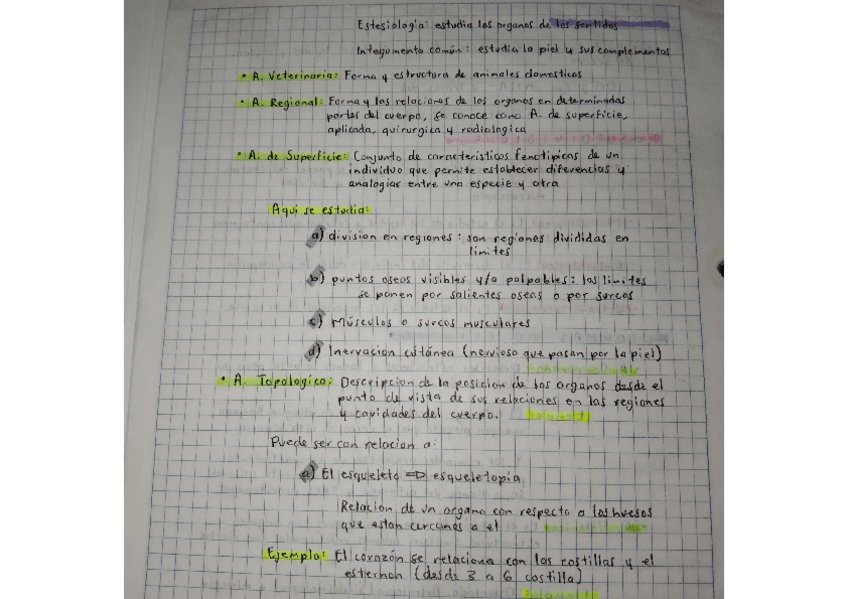 Estesiologia: estudia los organos de los sentidos
Integumento común: estudia la piel y sus complementos
• A. Veterinaria: Forma y estructura de animales domesticos
• A. Regional: Forma y las relaciones de los organos en determinadas
partes del cuerpo, se conoce como A. de superficie,
aplicada, quirurgica y radiologica
• A. de Superficie: Conjunto de caracteristicos fenotipicas de un
individuo que permite establecer diferencias y
analogias entre una especie y otra
Aqui se estudia:
a) division en regiones: son regiones divididas en
limites
b) puntos oseos visibles y/o palpables: los limites
se ponen por salientes oseos o por surcos
c) Músculos o surcos musculares
d) Inervacion cutánea (nervioso que pasan por la piel)
• A. Topologico: Descripcion de la posicion de los organos desde el
punto de vista de sus relaciones en las regiones
y cavidades del cuerpo.
Puede ser con relacion a:
a) El esqueleto ⇒ esqueletopia
Relacion de un organo con respecto a los huesos
que estan cercanos a el
Ejemplo: El corazón se relaciona con las costillas y el
esternon (desde 3 a 6 costilla)